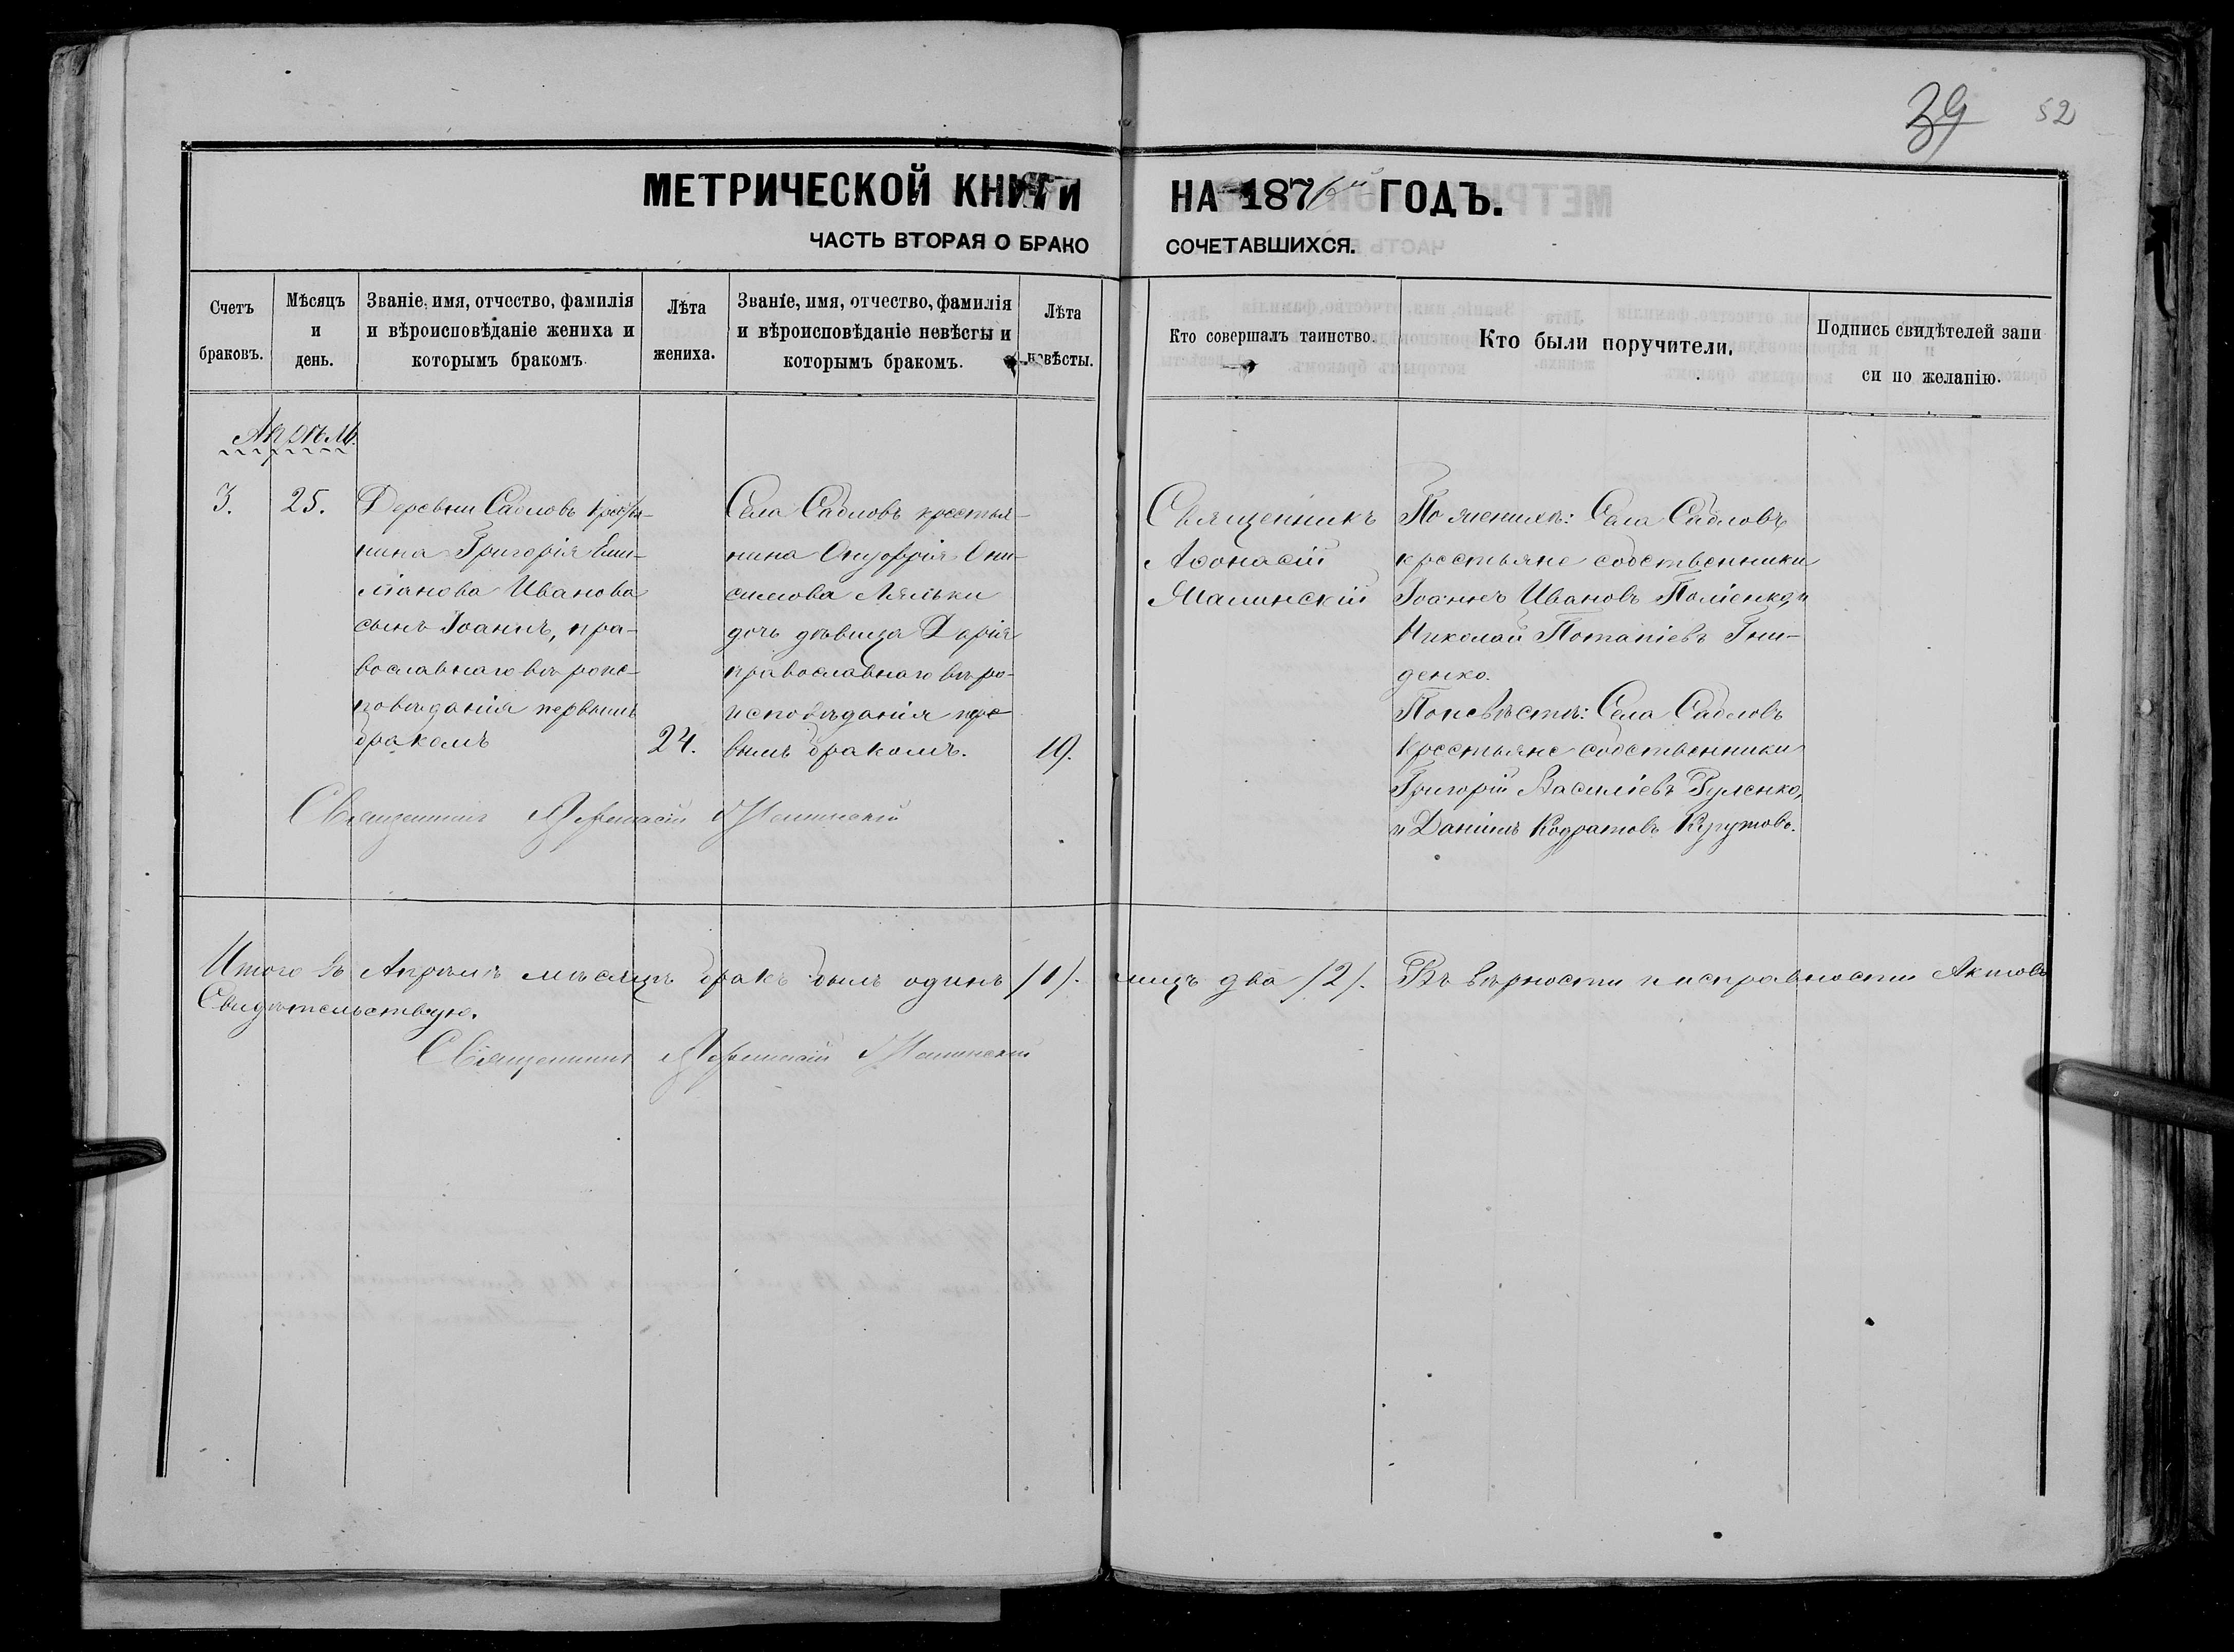 39 52
МЕТРИЧЕСКОЙ КНИГИ НА 1876й ГОДЪ.
ЧАСТЬ ВТОРАЯ О БРАКО СОЧЕТАВШИХСЯ.
Счетъ браковъ.
Мѣсяцъ и день.
Званіе, имя, отчество, фамилія и вѣроисповѣданіе жениха и которымъ бракомъ.
Лѣта жениха.
Званіе, имя, отчество, фамилія и вѣроисповѣданіе невѣсты и которымъ бракомъ.
Лѣта невѣсты.
Кто совершалъ таинство.
Кто были поручители.
Подпись свидѣтелей запи
си по желанію.
Апрѣль.
3.
25.
Деревни Садловъ крестья-
нина Григорія Еми-
ліанова Иванова
сынъ Іоаннъ, пра-
вославнаго вѣроис-
повѣданія первымъ
бракомъ
24.
Села Садловъ крестья-
нина Онуфрія Они-
симова Ляльки
дочь дѣвица Дарія
православнаго вѣро-
исповѣданія пер-
вымъ бракомъ.
19.
Священникъ
Аѳонасій
Малинскій
По женихѣ: Села Садловъ
крестьяне собственники
Іоаннъ Ивановъ и
Николай Потапіевъ Гни-
денко.
По невѣстѣ: Села Садловъ
крестьяне собственники
Григорій Василіевъ Руленко,
и Даніилъ Кодратовъ
Священникъ Афанасій Малинскій
Итого въ Апрѣлѣ мѣсяцѣ бракъ былъ одинъ /1/. лицъ два /2/. Въ вѣрности и исправности Актовъ
Свидѣтельствую.
Священникъ Афанасій Малинскій